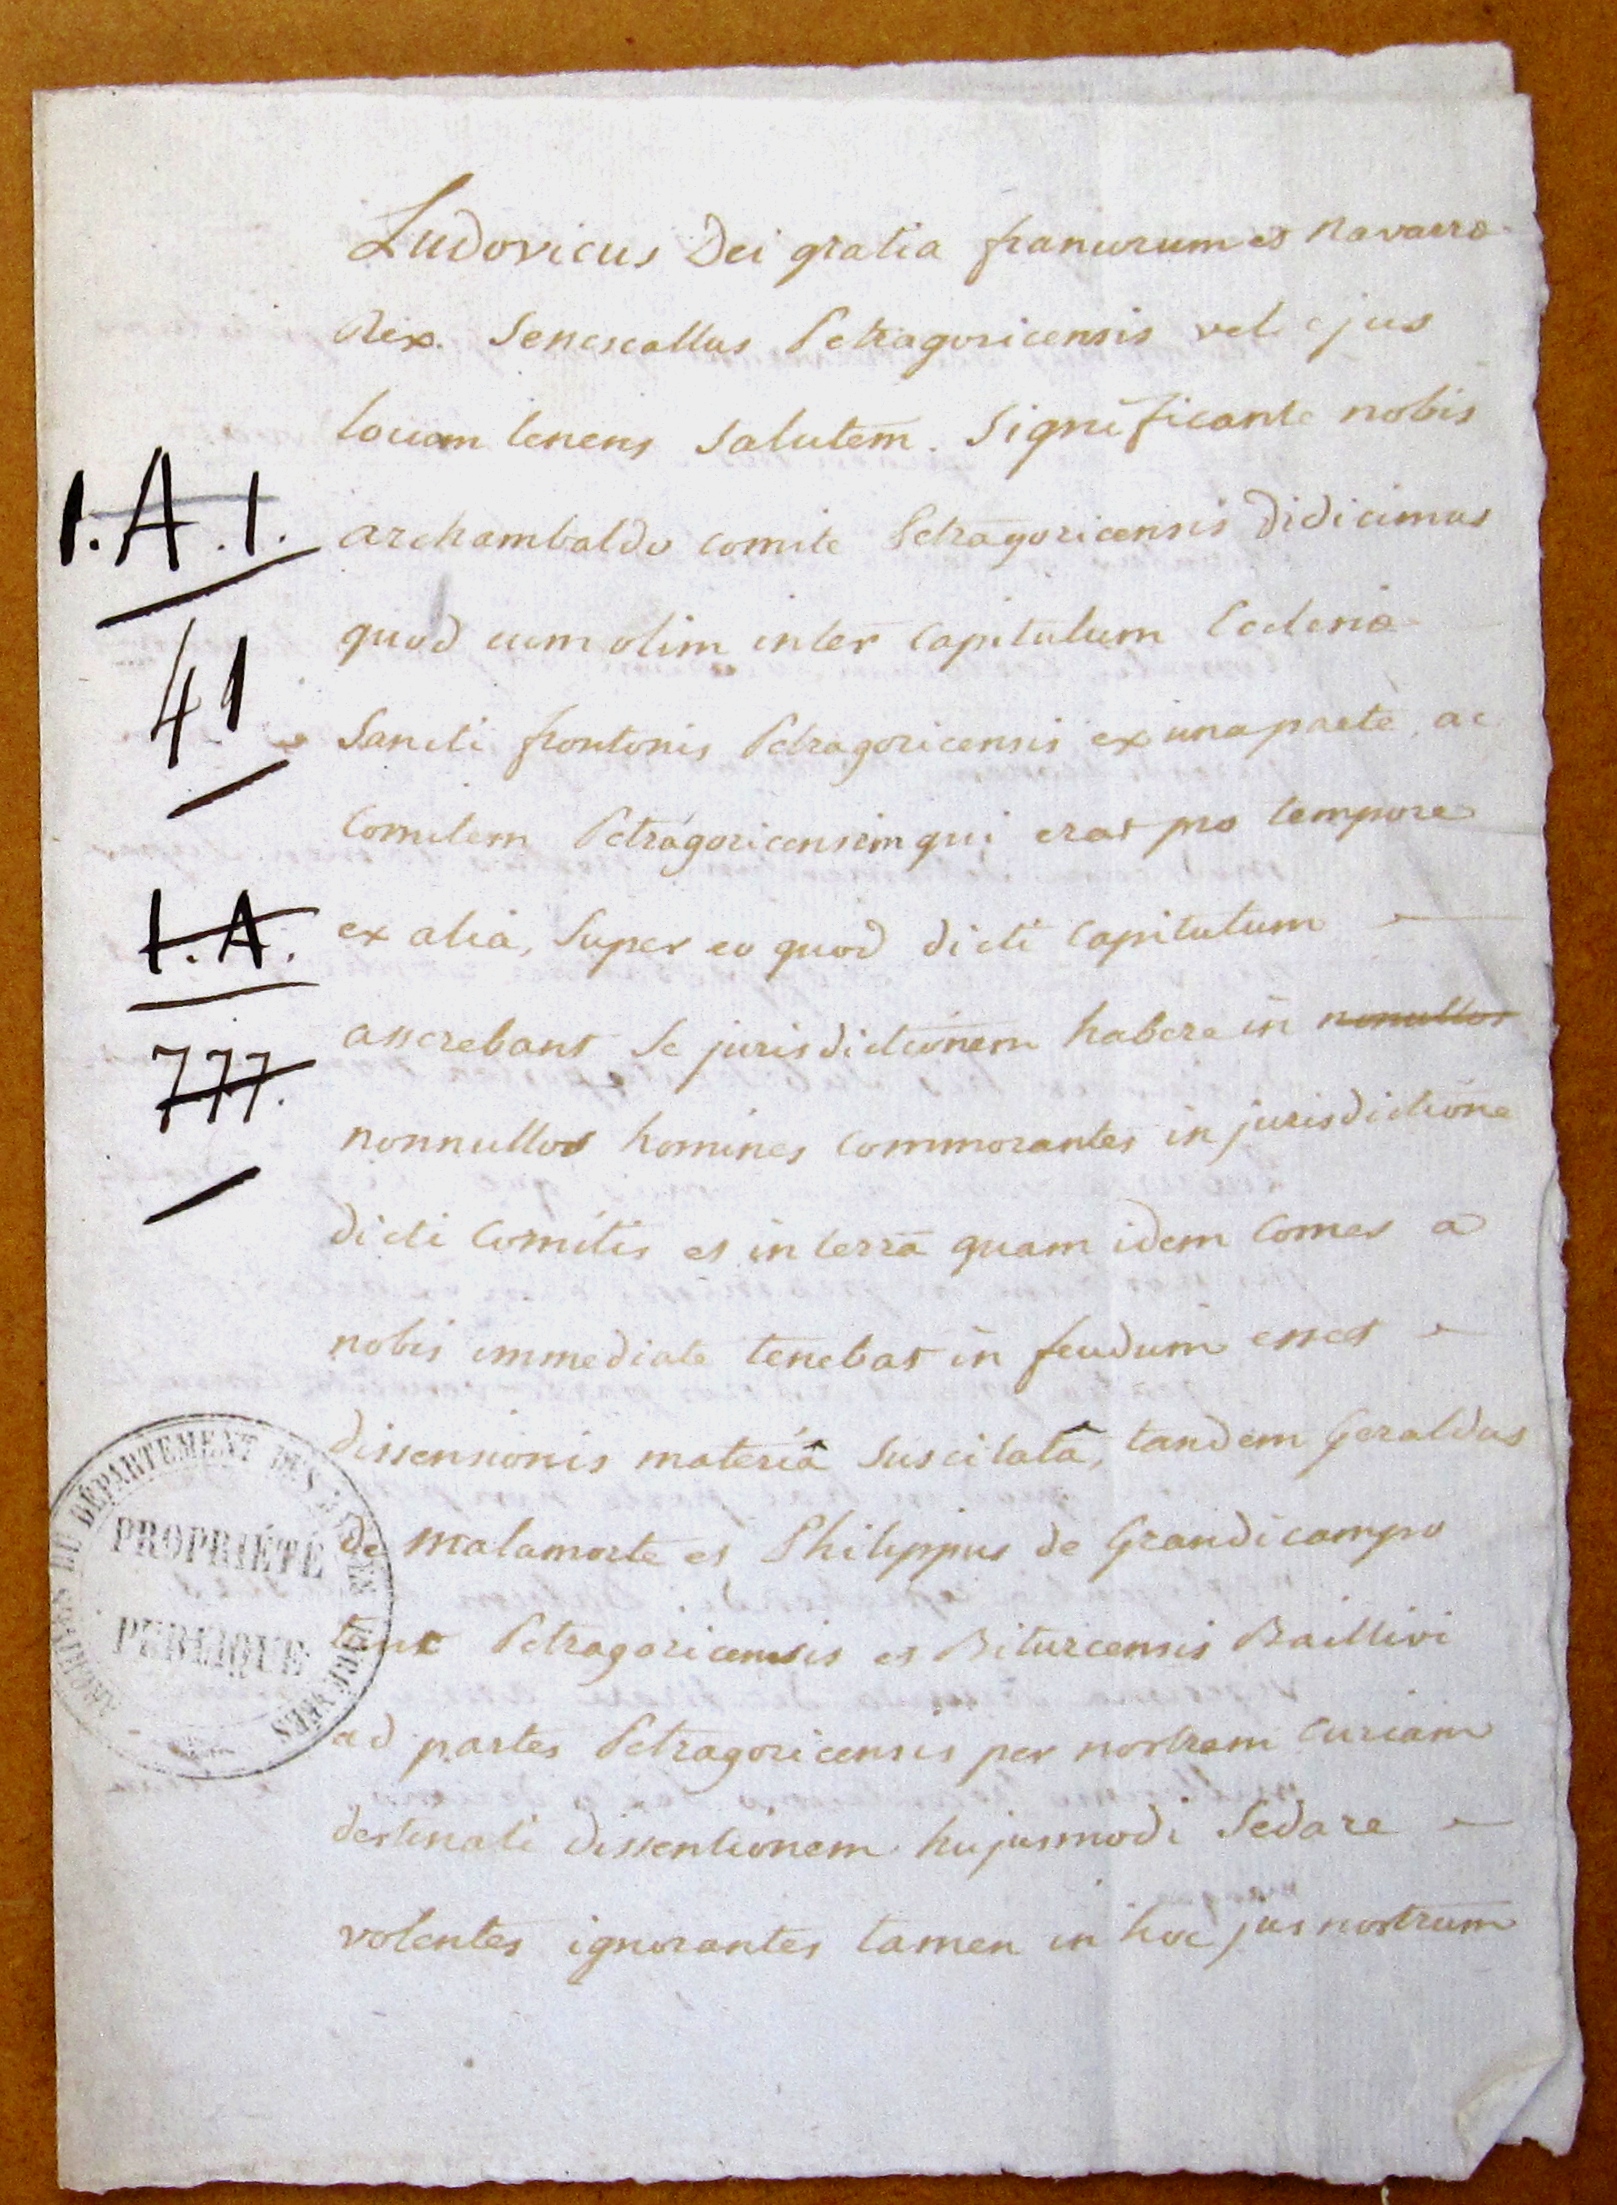 Ludovicus Dei gratia francorum et navarræ
Rex. Senescallus Petragoricensis vel ejus
locum tenens salutem. Significante nobis
archambaldo comite Petragoricensis didicimus
quod cum olim inter Capitulum Ecclesiæ
Sancti frontonis Petragoricensis ex una parte, ac
Comitem Petragoricensem qui erat pro tempore
ex alia, Super eo quod dicti Capitulum
asserebant Se jurisdictionem habere in nonullos
nonnullos homines commorantes in jurisdictione
dicti Comitis et in terra quam idem Comes a
nobis immediate tenebat in feudum esset
dissensionis materiâ Suscitatâ, tandem Geraldus
de malamorte et Philippus de Grandicampo
tunc Petragoricensis et Bituricensis Baillivi
ad partes Petragoricensis per nostram Curiam
destinati dissentionem hujusmodi Sedare
volentes ignorantes tamen in hoc jus nostrum
1.A.1.
41
1.A.
777.
ARCHIVES DU DÉPARTEMENT DES BASSES PYRÉNÉES
PROPRIÉTÉ
PUBLIQUE